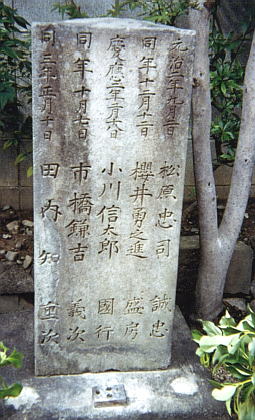 元治二年九月一日 松原忠司 誠忠
同年十二月十二日 櫻井勇之進 盛房
慶應 六日 小川信太郎 國行
同年十月 日 市橋鎌吉 義次
同三年正月十日 田内知 重次